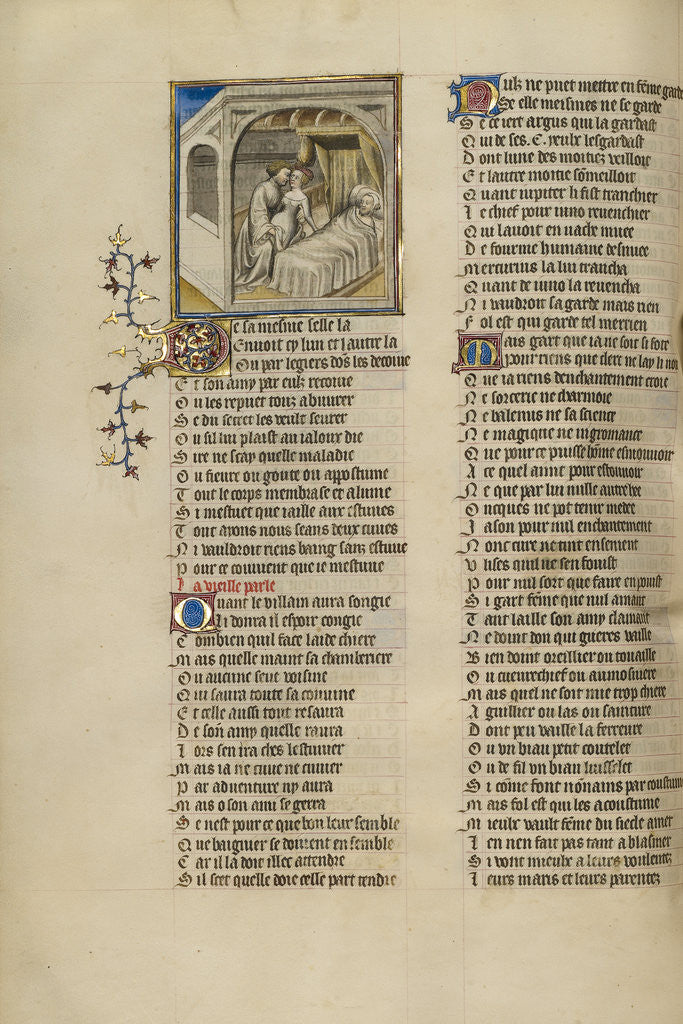 De sa mesme selle la
Envoit ep lun et lautre la
Ou par legiers dõs les decoive
Et son amy par eulx recoive
Ou les repuet touz abuvrer
Se du secret les veult seurer
Ou sil lui plaist au ialoux die
Sire ne scay quelle maladie
Ou fieure ou goute ou appostume
Tout le corps membrase et alume
Si mestuet que iaille aux estuves
Tout ayons nous seans deux cuves
Ni vauldroit riens baing sans estuve
Pour ce couvent que ie mestuve
La vieille parle
Quant le villain aura songie
Li donra il espoir congie
Combien quil face laide chiere
Mais quelle maint sa chamberiere
Ou aucune seue voisine
Qui saura toute sa couvine
Et celle aussi tout resaura
De son amy quelle raura
Lors sen ira ches lestuvier
Mais ia ne cuve ne cuvier
Par adventure ny aura
Mais o son ami se gerra
Se nest pour ce que bon leur semble
Que baignier se doivent ensemble
Car il la doit illec attendre
Sil scet quelle doie celle part tendre
Nulz ne puet mettre en fẽme garde
Se elle meismes ne se garde
Se ce iert argus qui la gardast
Qui de ses .C. yeulx lesgardast
Dont lune des moitiez veilloit
Et lautre moitie sõmeilloit
Quant iupiter li fist tranchier
Le chief pour iuno revenchier
Qui lavoit en vache muee
De fourme humaine desnuee
Mercurius la lui trancha
Quant de iuno la revencha
Ni vaudroit sa garde mais rien
Fol est qui garde tel merrien
Mais gart que ia ne soit si sote
Pour riens que clerc ne lay li note
Que ia riens denchantement croie
Ne sorcerie ne charmoie
Ne balenus ne sa science
Ne magique ne nigromance
Que pour ce puisse hõme esmouvoir
A ce quel aint pour estouvoir
Ne que par lui nulle autre hee
Oncques ne pot tenir medee
Iason pour nul enchantement
Nonc cure ne tint ensement
Ulixes quil ne sen fouist
Pour nul sort que faire en pouist
Si gart fẽme que nul amant
Tant laille son amy clamant
Ne doint don qui gueres vaille
Bien doint oreillier ou touaille
Ou cueurechief ou aumosniere
Mais quel ne soit mie trop chiere
Aguillier ou las ou sainture
Dont peu vaille la ferreure
Ou un biau petit coutelet
Ou de fil un biau luisselet
Si cõme font nõnains par coustume
Mais fol est qui les acoustume
Mieulx vault fẽme du siecle amer
Len nen fait pas tant a blasmer
Si vont mieulx a leurs voulentez
Leurs maris et leurs parentez